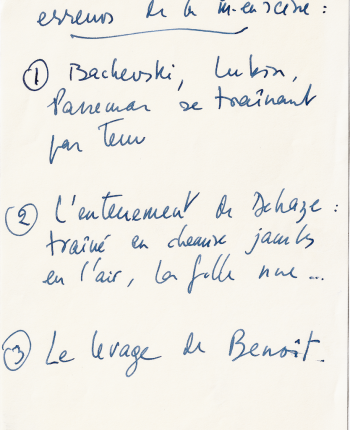 erreurs de la m. en scène :
① Bachevski, Lubin,
Parremar se traînant
par terre
② L'enterrement de Dehaze :
traîné en chemise jambes
en l'air, la fille nue ...
③ Le levage de Benoît.